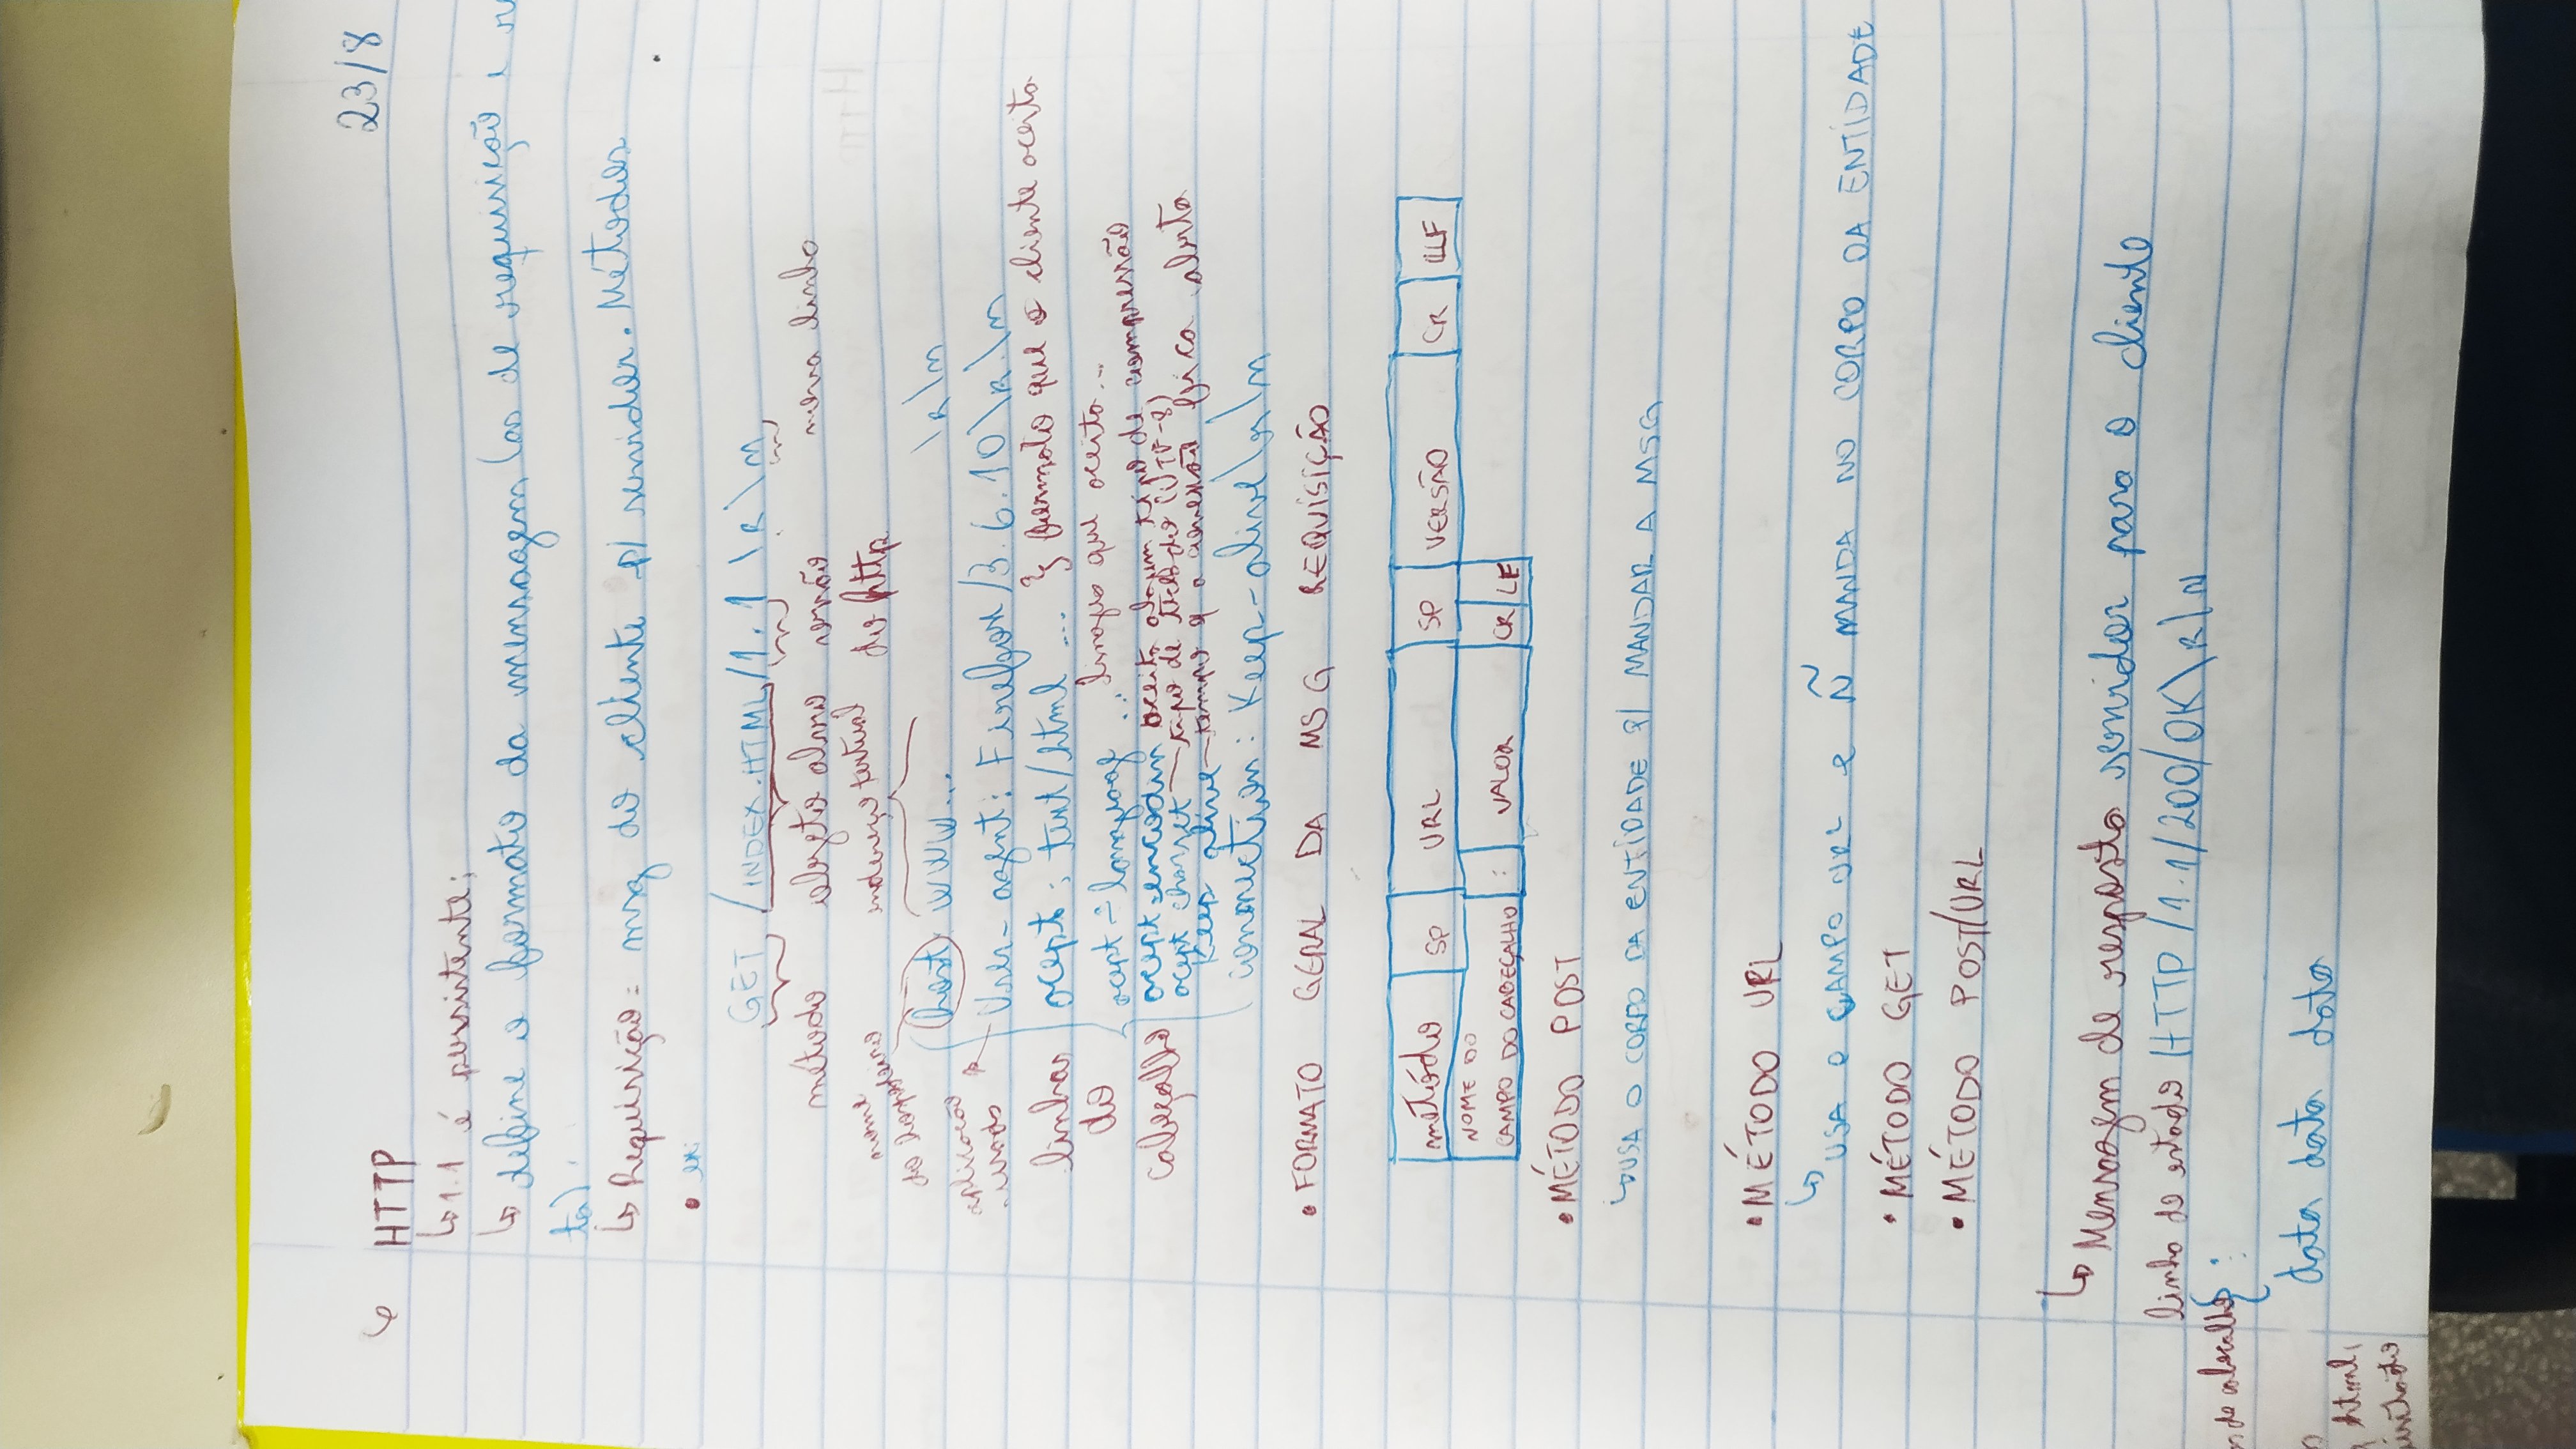 23/8
HTTP
↳ 1.1 é persistente;
↳ define o formato da mensagem (as de requisição e
ta)
↳ Requisição = msg do cliente p/ servidor. Métodos
• ex:
GET /INDEX.HTML/1.1 \R\N
método objeto alvo versão nova linha
nome do hospedeiro endereço textual do http
host: www... \R\N
aplicação usada
User-agent: Firefox/3.6.10\R\N
linhas do cabeçalho
acept: text/html ... } formato que o cliente aceita
acept-language ... língua que aceita...
acept-encodin aceita algum tipo de compressão
acept charset — tipo de teclado (UTF-8)
Keep alive — tempo q a conexão fica aberta
connection: Keep-alive\R\N
• FORMATO GERAL DA MSG REQUISIÇÃO
método SP URL SP VERSÃO CR LF
NOME DO
CAMPO DO CABEÇALHO : VALOR CR LF
• MÉTODO POST
↳ USA O CORPO DA ENTIDADE P/ MANDAR A MSG
• MÉTODO URL
↳ USA O CAMPO URL e Ñ MANDA NO CORPO DA ENTIDADE
• MÉTODO GET
• MÉTODO POST/URL
↳ Mensagem de resposta servidor para o cliente
linha de estado HTTP/1.1/200/OK\R\N
de cabeçalho { :
data data data
html,